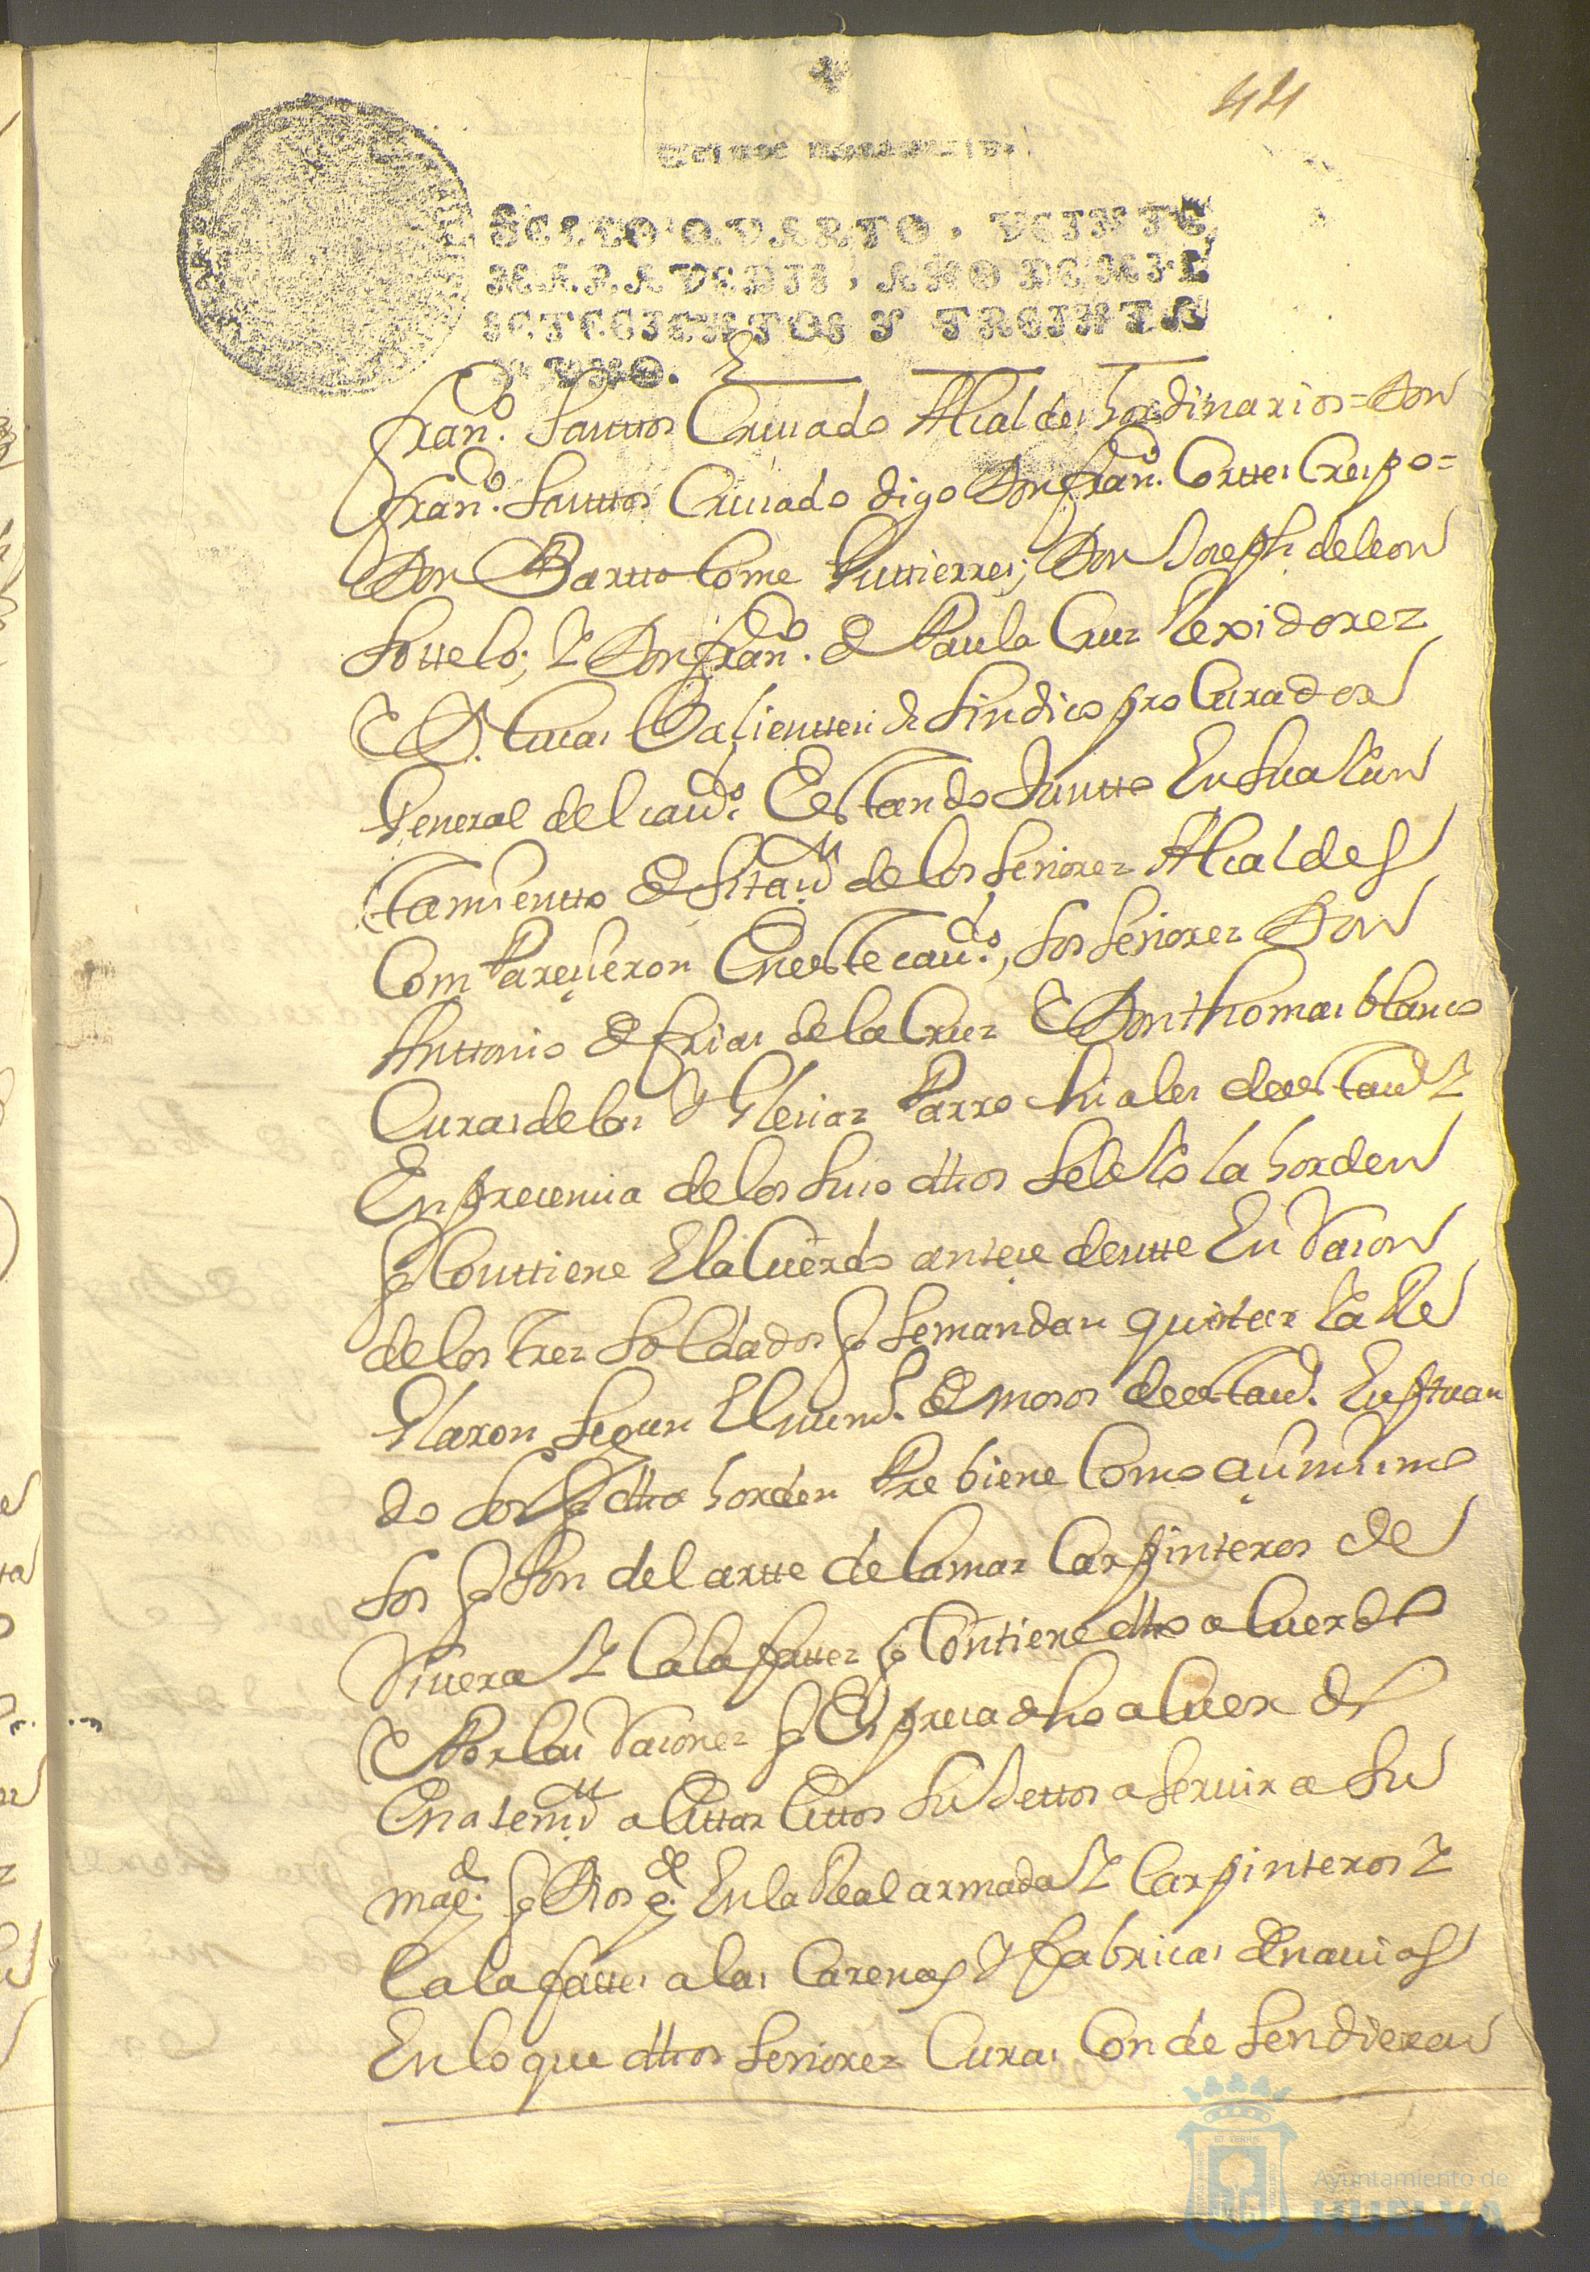 424
Veinte maravedis.
SELLO QVARTO, VEINTE
MARAVEDIS, AÑO DE MIL
SETECIENTOS Y TREINTA
Y VNO.
Franco. Santtos Criuado Alcaldes hordinarios = Don
Franco. Santtos Criuado digo Don Franco. Corttes Crespo =
Don Barttolome Guttierres; Don Joseph de leon
Sottelo; Y Don Franco. de Paula Cruz Rexidorez
D. Lucas sindico procurador
General del cavdo. Estando Juntto En su aiun
tamientto de los señorez Alcaldes
Comparecieron En este cavdo., los señorez Don
Anttonio de frias de la Cruz Don thomas blanco
Curas de las Yglesiaz Parrochiales de esta uª Y
En precencia de los suso dhos se leio la horden
q Conttiene El acuerdo antecedentte En Raçon
de los trez soldados q se mandan quintar la Re
Glaron segun El de mosos de esta uª.
do los q dha horden Prebiene Como asimismo
los q son del artte de la mar Carpinteros de
Riuera Y Calafattez q Contiene dho acuerdo
Por las Raçonez q Espresa dho acuerdo
En atenon a sujettos a seruir a su
magd. q Dios gde. En la Real armada Y Carpinteros Y
Calafattes a las Carenas Y fabricas de nauios
En lo que dhos señorez Curas Condesendieron
Ayuntamiento de
HUELVA